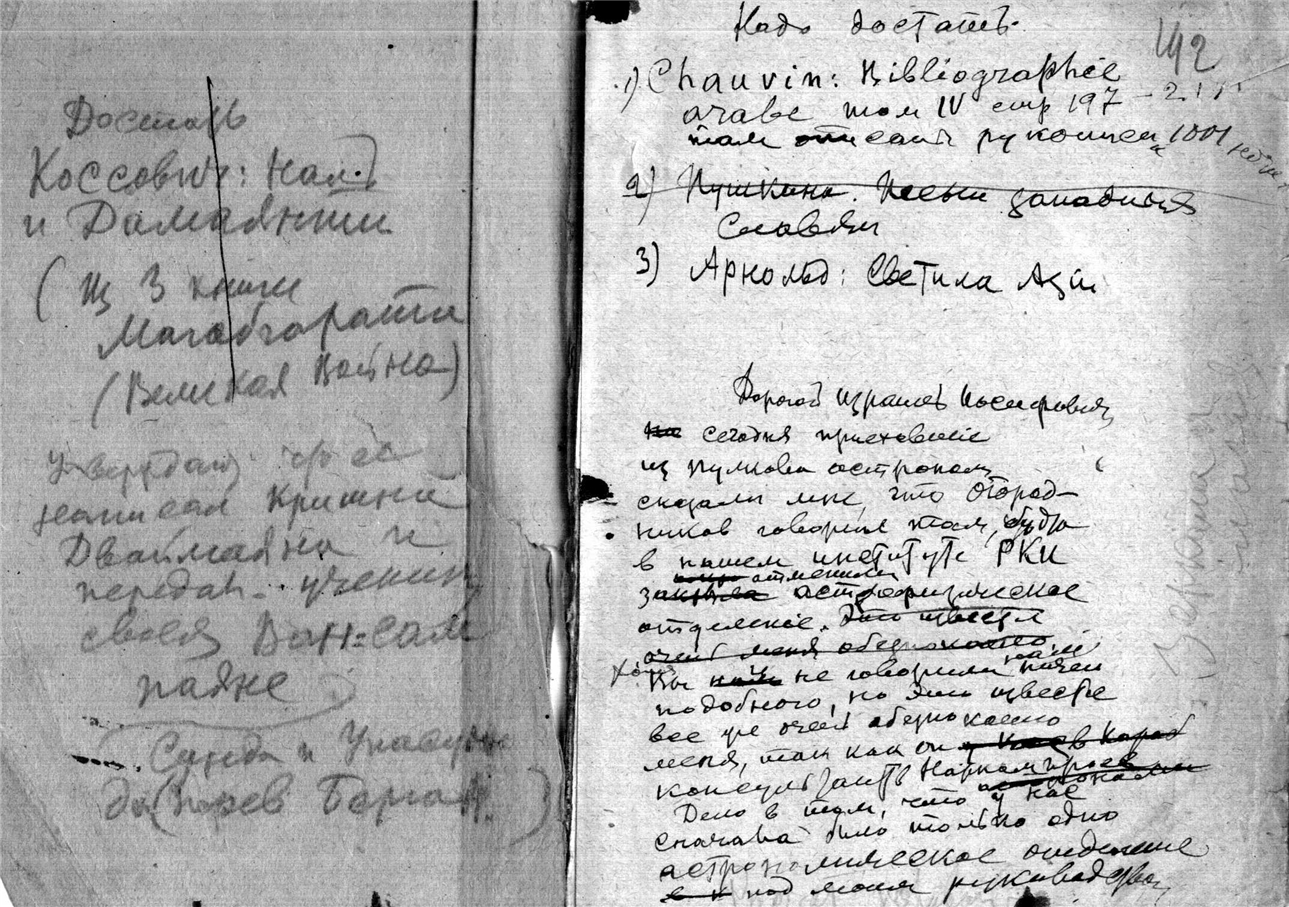 Достать
Коссович: Налъ
и Дамаянти
(Из 3 книги
Магабгараты
(Великая Война)
Утверждают, что ее
написал Кришна
Двайпаяна и
передал ученику
своему
паяне
Сунда и Упасунда
(перев
Надо достать
142
1) Chauvin: Bibliographie
arabe том IV стр 197 –
там описан рукописи 1001 ночи
2) Пушкина. Песни западных
Славян
3) Арнольд: Светила Азии
Дорогой Израиль Иосифович,
сегодня приехавшие
из Пулкова астрономы
сказали мне, что Огород-
ников говорил там, будто
в нашем институте РКИ
отменили
закрыла астрофизическое
отделение. Это известие
очень меня обеспокоило
Хотя
Вы не говорили нам ничего
подобного, но это известие
все же очень обеспокоило
меня, так как он
консультант Наркомпроса
Дело в том, что у нас
сначала было только одно
астрономическое отделение
под моим руководством,